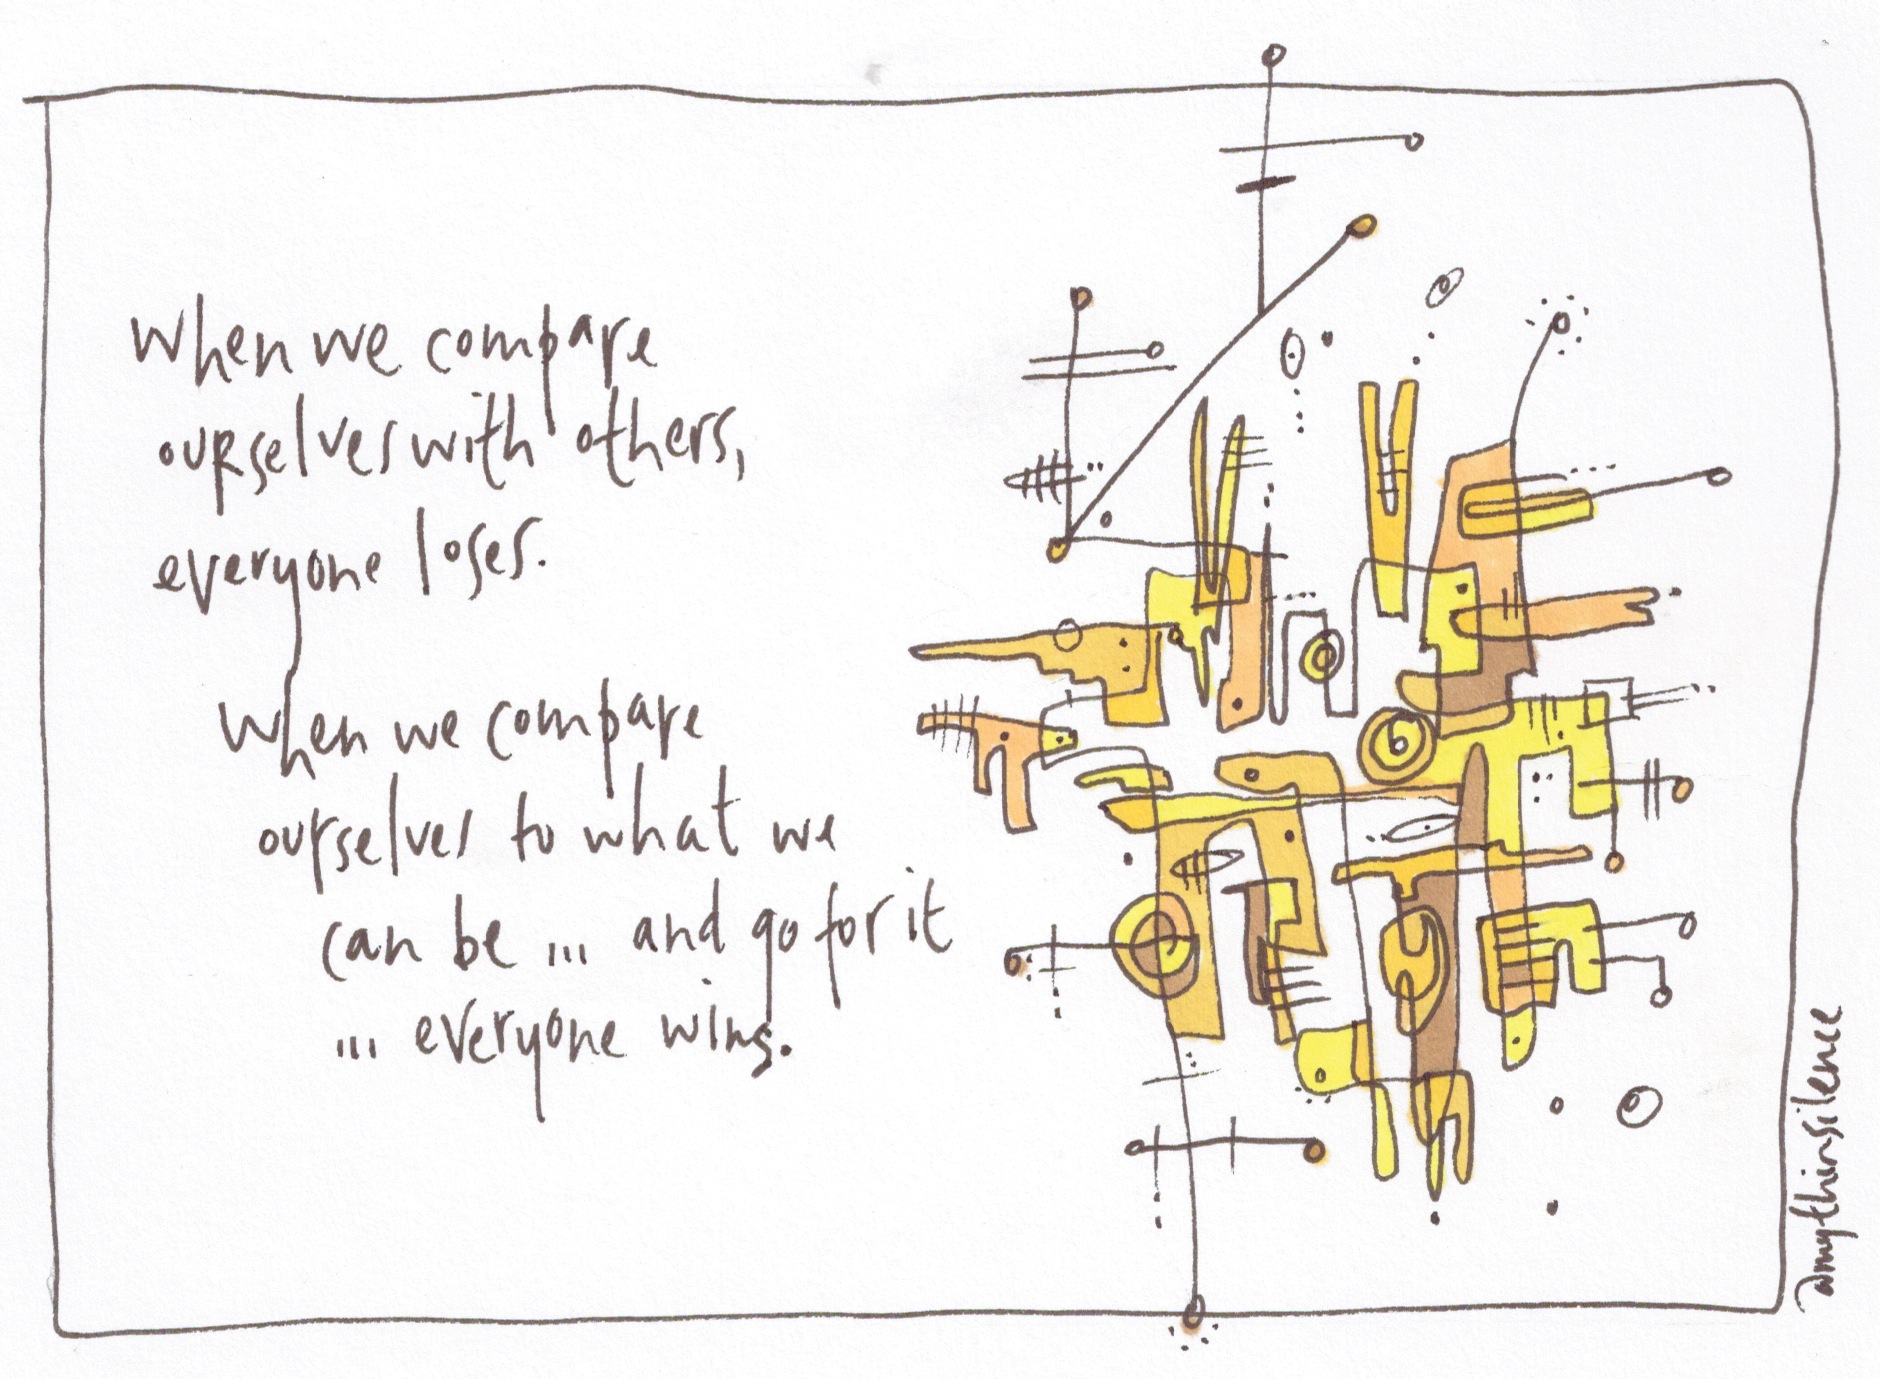 When we compare
ourselves with others,
everyone loses.
When we compare
ourselves to what we
can be ... and go for it
... everyone wins.
@mythinsilence